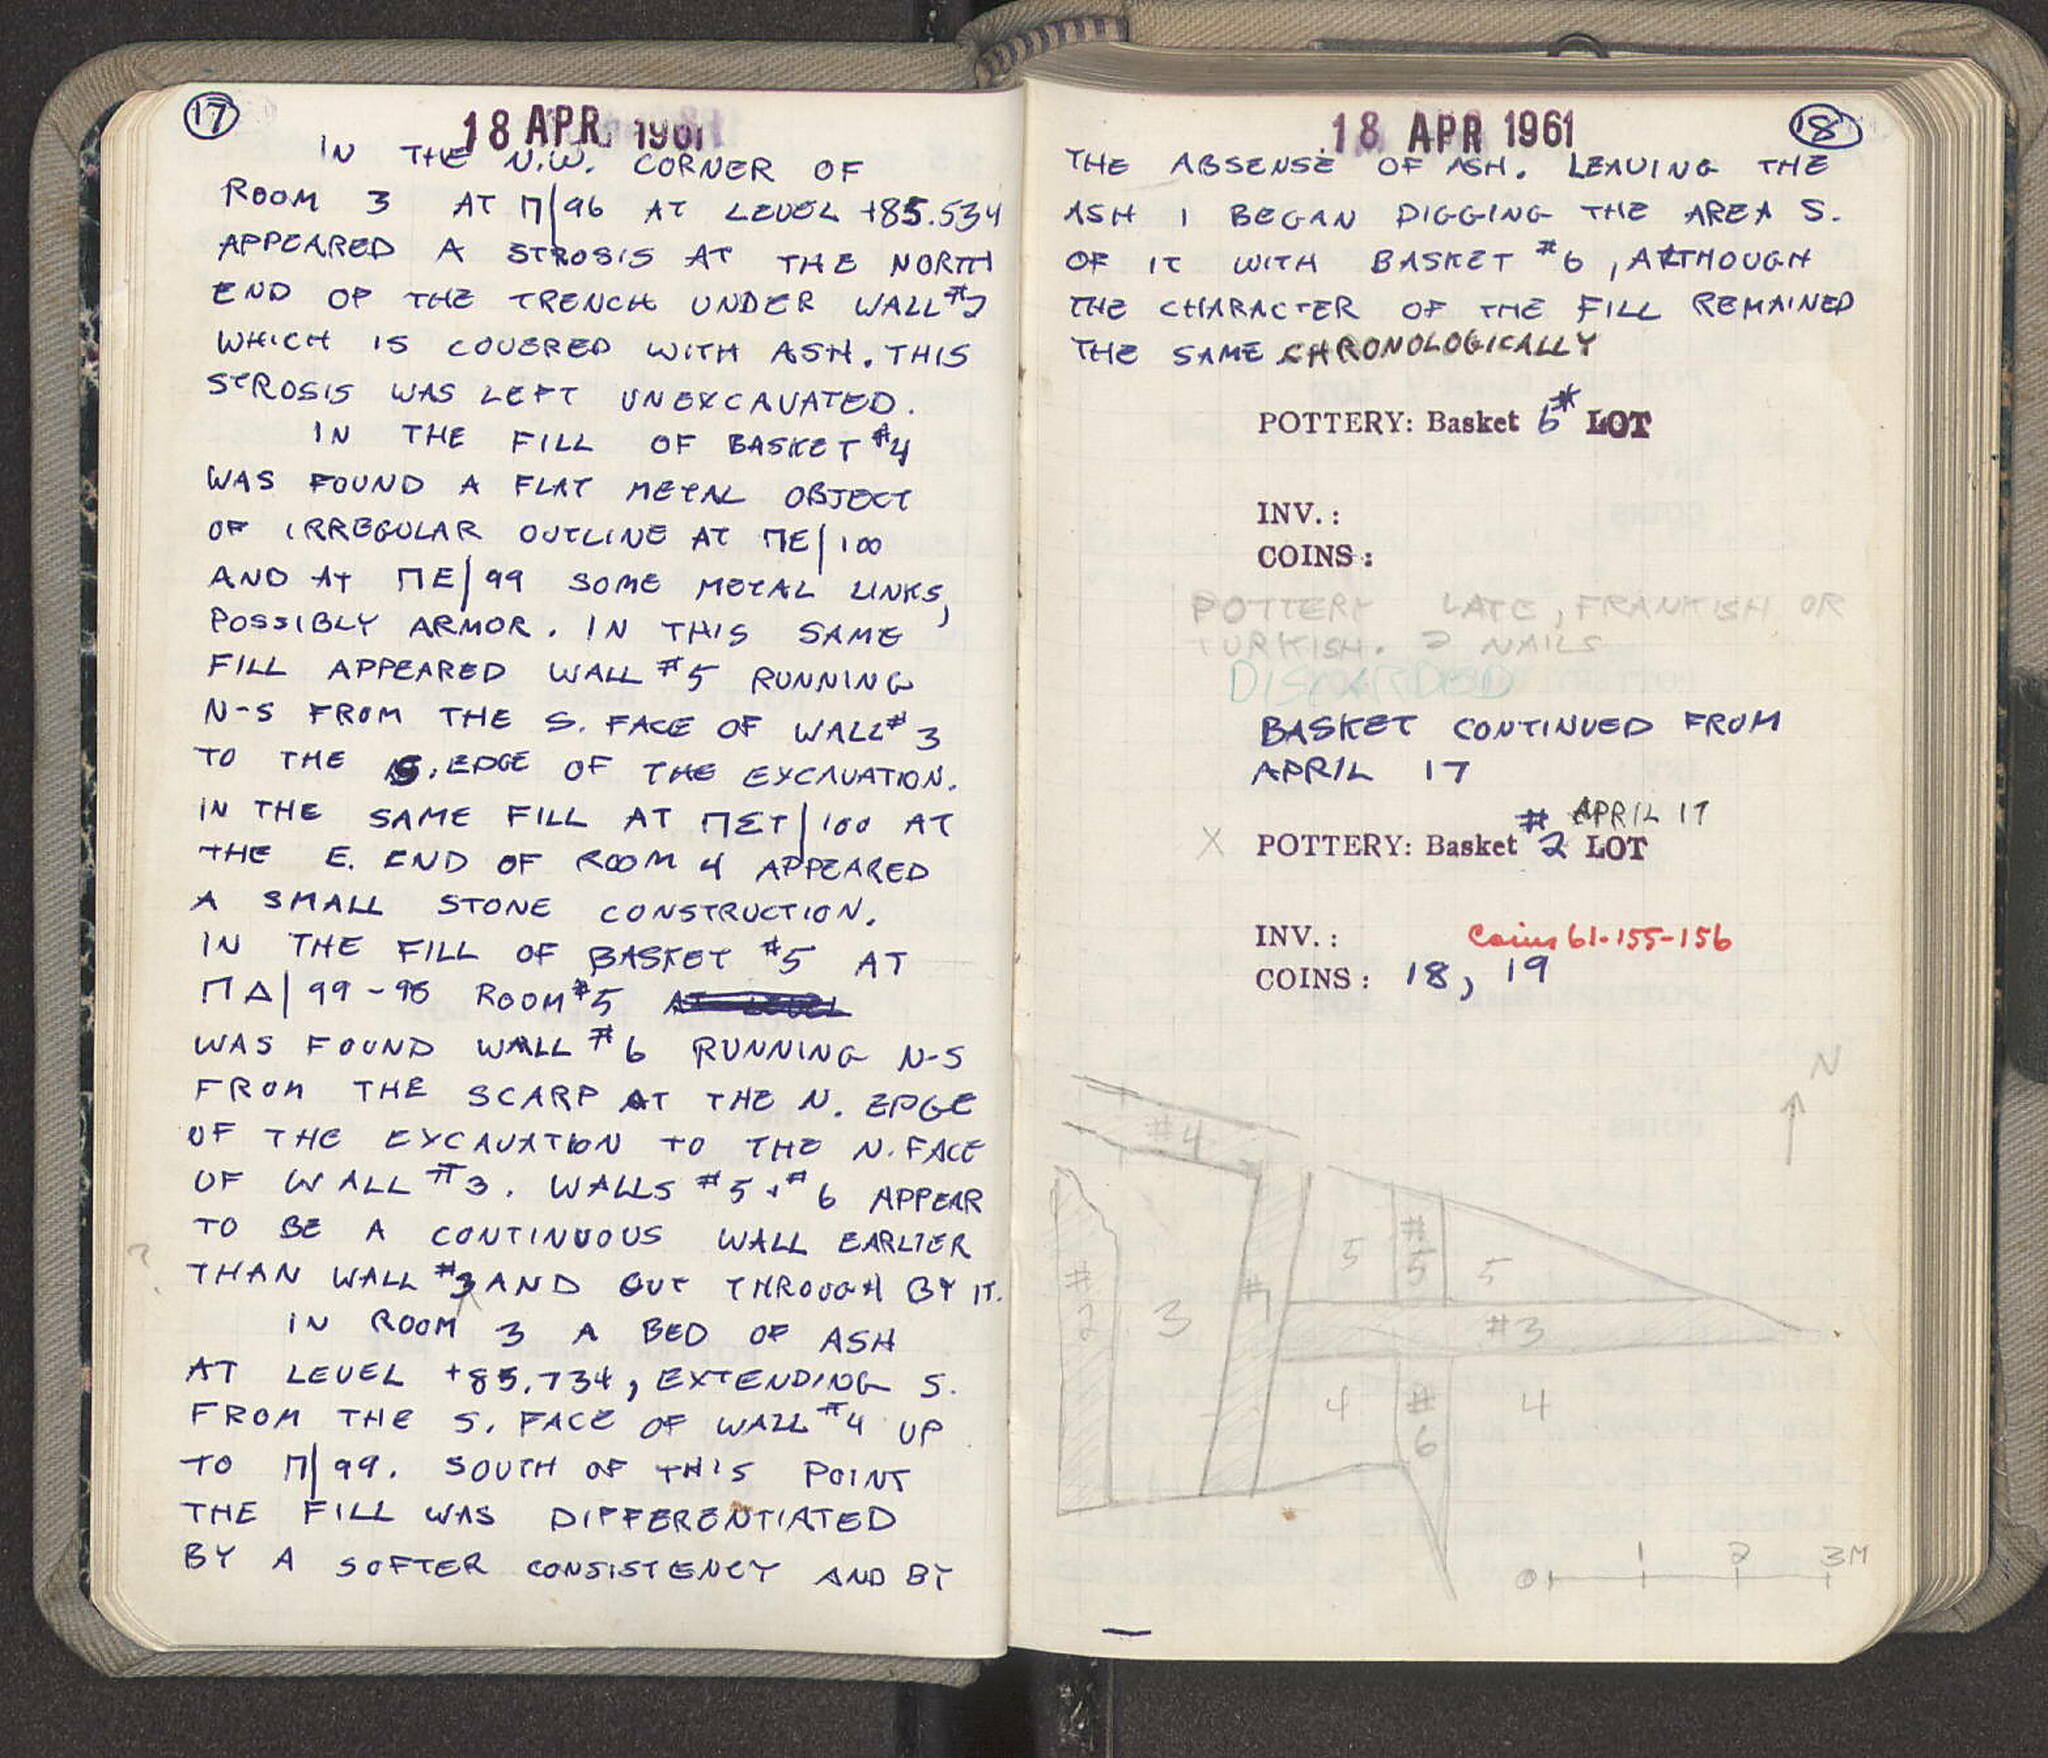 17
18 APR 1961
IN THE N.W. CORNER OF
ROOM 3 AT Π/96 AT LEVEL +85.534
APPEARED A STROSIS AT THE NORTH
END OF THE TRENCH UNDER WALL #2
WHICH IS COVERED WITH ASH. THIS
STROSIS WAS LEFT UNEXCAVATED.
IN THE FILL OF BASKET #4
WAS FOUND A FLAT METAL OBJECT
OF IRREGULAR OUTLINE AT ΠΕ/100
AND AT ΠΕ/99 SOME METAL LINKS,
POSSIBLY ARMOR. IN THIS SAME
FILL APPEARED WALL #5 RUNNING
N-S FROM THE S. FACE OF WALL #3
TO THE S. EDGE OF THE EXCAVATION.
IN THE SAME FILL AT ΠΣΤ/100 AT
THE E. END OF ROOM 4 APPEARED
A SMALL STONE CONSTRUCTION.
IN THE FILL OF BASKET #5 AT
ΠΔ/99-98 ROOM #5 AT LEVEL
WAS FOUND WALL #6 RUNNING N-S
FROM THE SCARP AT THE N. EDGE
OF THE EXCAVATION TO THE N. FACE
OF WALL #3. WALLS #5 + #6 APPEAR
TO BE A CONTINUOUS WALL EARLIER
?
THAN WALL #3 AND CUT THROUGH BY IT.
IN ROOM 3 A BED OF ASH
AT LEVEL +85.734, EXTENDING S.
FROM THE S. FACE OF WALL #4 UP
TO Π/99. SOUTH OF THIS POINT
THE FILL WAS DIFFERENTIATED
BY A SOFTER CONSISTENCY AND BY
18 APR 1961
18
THE ABSENSE OF ASH. LEAVING THE
ASH I BEGAN DIGGING THE AREA S.
OF IT WITH BASKET #6, ALTHOUGH
THE CHARACTER OF THE FILL REMAINED
THE SAME CHRONOLOGICALLY
POTTERY: Basket 6# LOT
INV.:
COINS:
POTTERY LATE, FRANKISH OR
TURKISH. 2 NAILS
DISCARDED
BASKET CONTINUED FROM
APRIL 17
APRIL 17
X POTTERY: Basket #2 LOT
INV.: Coins 61-155-156
COINS: 18, 19
N
#4
5 #5 5
#2 3 #1 #3
4 #6 4
0 1 2 3M